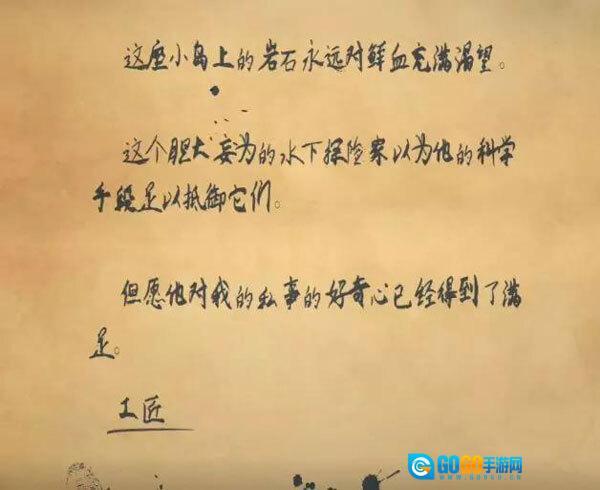 这座小岛上的岩石永远对鲜血充满渴望。
这个胆大妄为的水下探险家以为他的科学
手段足以抵御它们。
但愿他对我的私事的好奇心已经得到了满
足。
工匠
GOGO手游网
WWW.GOGOGO.CN